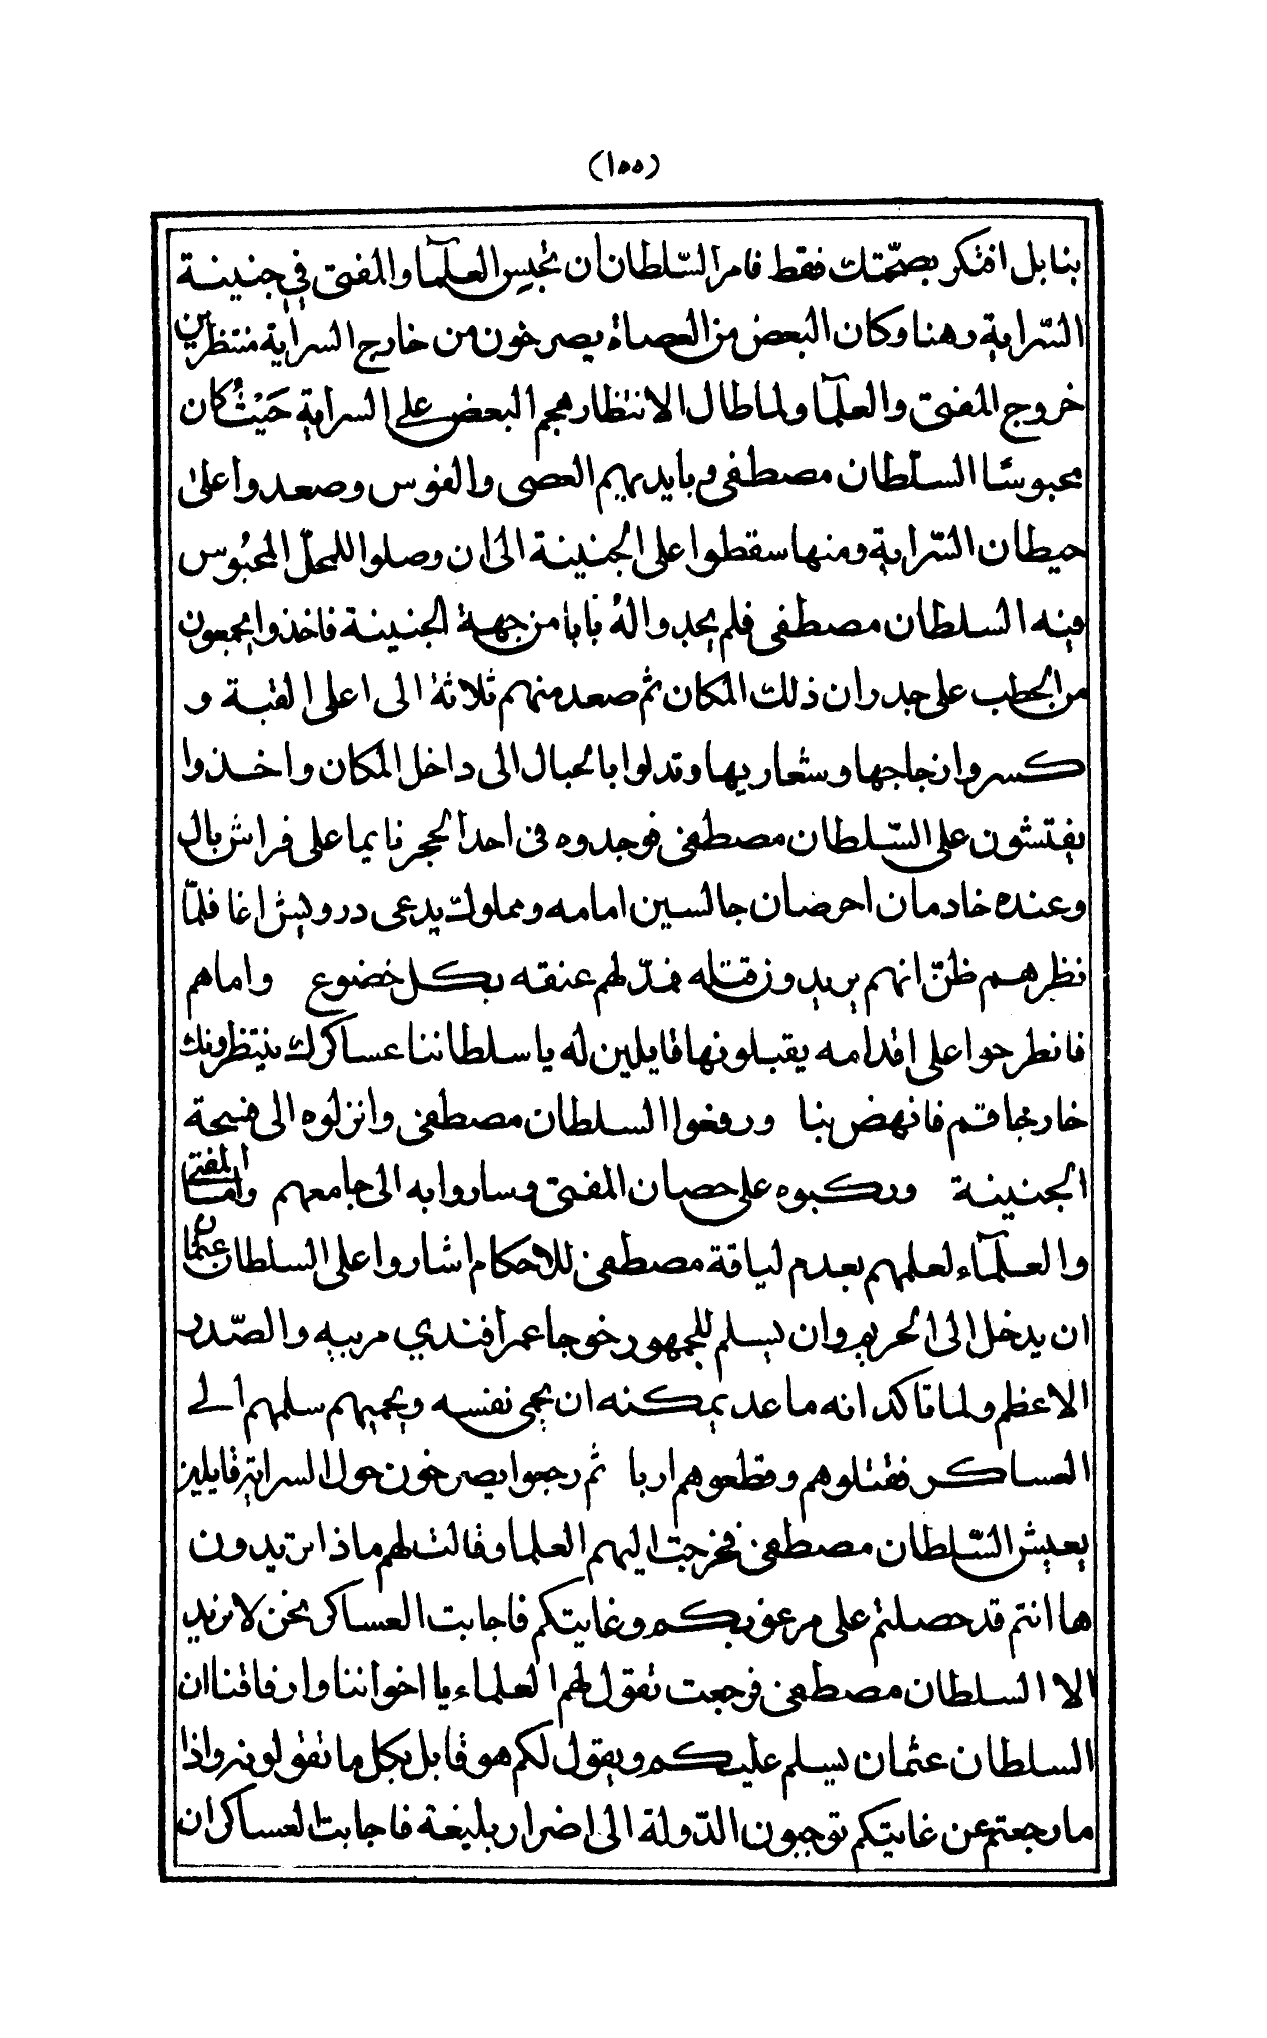 (١٥٥)
بنا بل افتكر بصحّتك فقط فامر السّلطان ان تحبس العلمآ والمفتى فى جنينة
السّراية وهنا وكان البعض من العصاة يصرخون من خارج السراية منتظرين
خروج المفتى والعلمآ ولما طال الانتظار هجم البعض على السراية حَيْثُ كان
محبوسًا السلّطان مصطفى وبايديهم العصى والفوس وصعدوا على
حيطان السّراية ومنها سقطوا على الجنينة الى ان وصلوا للمحلّ المحبُوس
فيه السلطان مصطفى فلم يجدوا لهُ بابا من جهة الجنينة فاخذوا يجمعون
من الحطب على جدران ذلك المكان ثم صعد منهم ثلاثة الى اعلى القبة و
كسروا زجاجها وشعاريها وتدلوا بالحبال الى داخل المكان واخذوا
يفتشون على السّلطان مصطفى فوجدوه فى احد الحجر نايما على فراش بال
وعنده خادمان اخرضان جالسين امامه ومملوك يدعى درويش اغا فلمّا
نظرهم ظنّ انهم يريدون قتله فمدّ لهم عنقه بكل خضوع واما هم
فانطرحوا على اقدامه يقبلونها قايلين له يا سلطاننا عساكرك ينتظرونك
خارجا قم فانهض بنا ورفعوا السلطان مصطفى وانزلوه الى فسحة
الجنينة وركبوه على حصان المفتى وساروا به الى جامعهم واما المفتى
والعلمآء لعلمهم بعدم لياقة مصطفى للاحكام اشاروا على السلطان عثمان
ان يدخل الى الحريم وان يسلم للجمهور خوجا عمر افندي مربيه والصّدر
الاعظم ولما تاكد انه ما عد يمكنه ان يحمى نفسه ويحميهم سلمهم الى
العساكر فقتلوهم وقطعوهم اربا ثم رجعوا يصرخون حول السراية قايلين
يعيش السّلطان مصطفى فخرجت اليهم العلما وقالت لهم ماذا تريدون
ها انتم قد حصلتم على مرغوبكم وغايتكم فاجابت العساكر نحن لا نريد
الا السلطان مصطفى فرجعت تقول لهم العلماء يا اخواننا وارفاقنا ان
السلطان عثمان يسلم عليكم ويقول لكم هو قابل بكل ما تقولونه واذا
ما رجعتم عن غايتكم توجبون الدّولة الى اضرار بليغة فاجابت العساكر ان